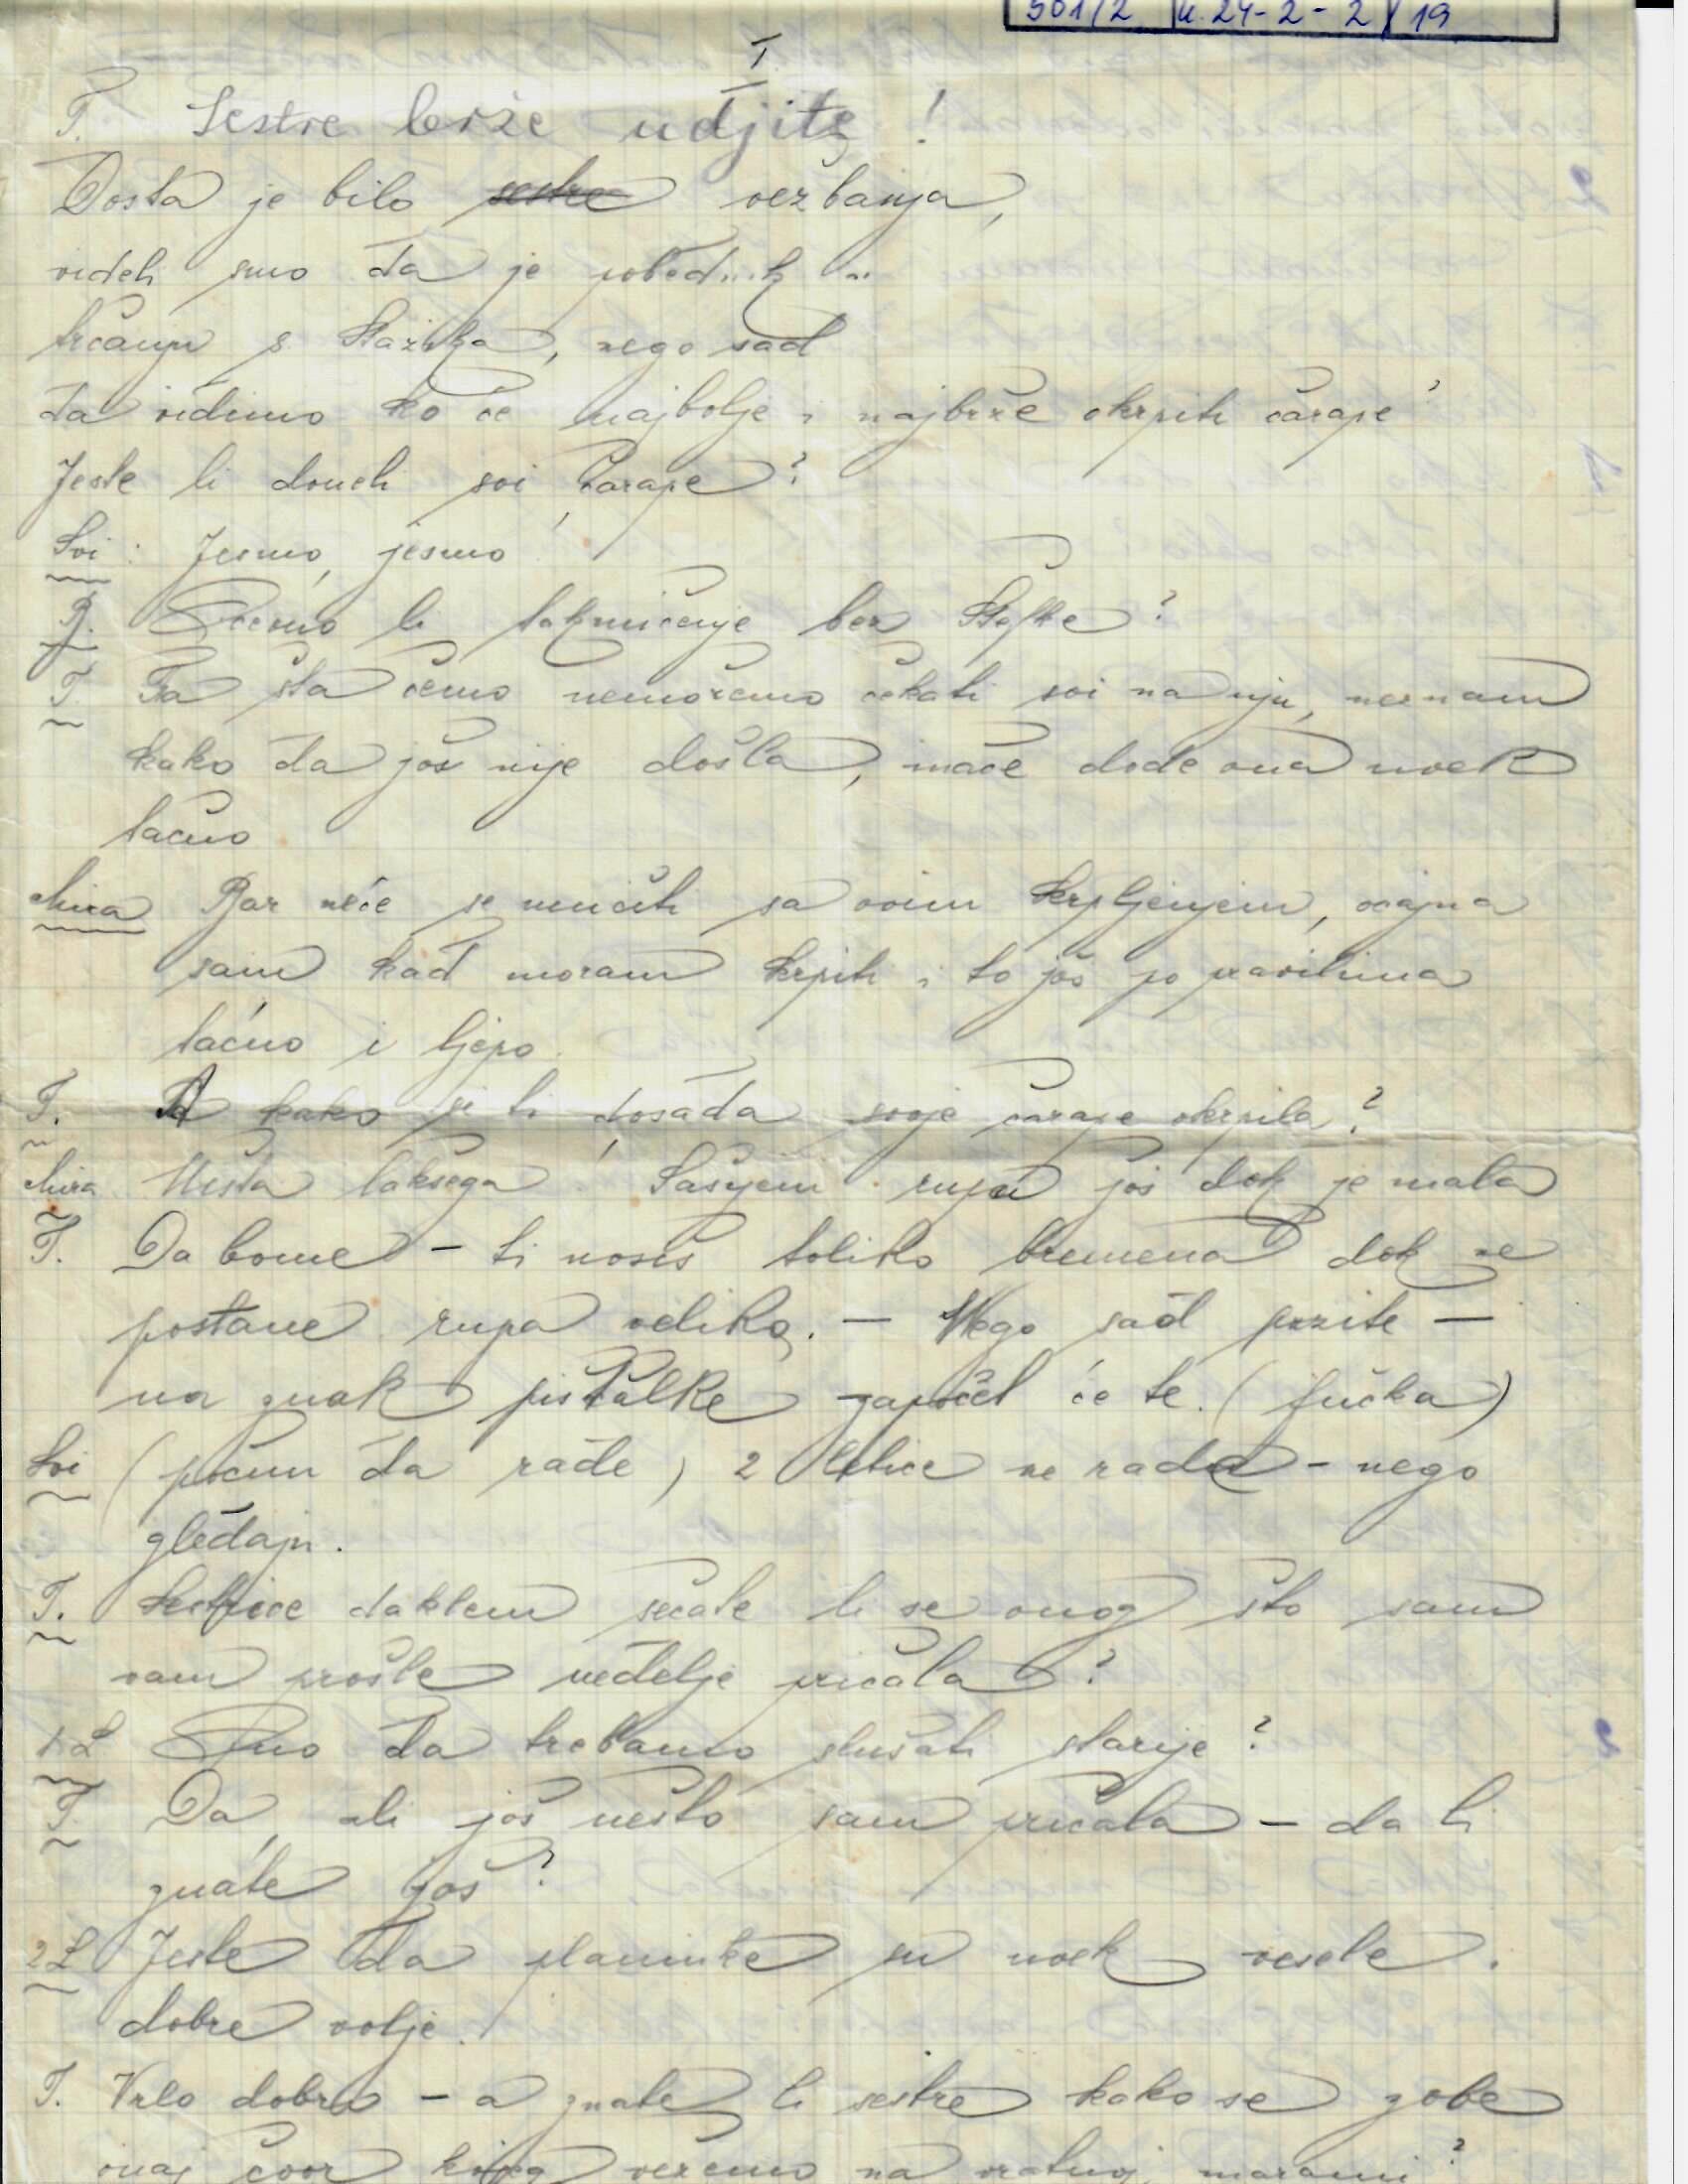 501/2 K. 24-2-2/19
I
T. Sestre brže udjite!
Dosta je bilo sestre vežbanja,
videli smo da je pobednik u
trčanju s Stazika, nego sad
da vidimo ko će najbolje i najbrže okrpiti čarape?
Jeste li doneli svi čarape?
Svi: Jesmo, jesmo!
R. Očemo li takmičenje bez Štefke?
T. Pa šta ćemo nemožemo čekati svi na nju, neznam
kako da još nije došla, inače dođe ona uvek
tačno
Mira Bar neće se mučiti sa ovim krpljenjem, očajna
sam kad moram krpiti i to još po pravilima
tačno i ljepo.
T. A kako si ti dosada svoje čarape okrpila?
Mira Ništa lakšega! Sašijem rupu još dok je mala
T. Da bome - ti nosiš toliko vremena dok ne
postane rupa velika. - Nego sad pazite -
na znak pištaljke započet će te. (fučka)
Svi (počmu da rade) 2 letice ne rade - nego
gledaju.
T. Letice daklem sećate li se onog što sam
vam prošle nedelje pričala?
1.L Ono da trebamo slušati starije?
T. Da, ali još nešto sam pričala - da li
znate još?
2L Jeste da planinke su uvek vesele i
dobre volje.
T. Vrlo dobro - a znate li sestre kako se zove
onaj čvor kojeg vežemo na vratnoj marami?